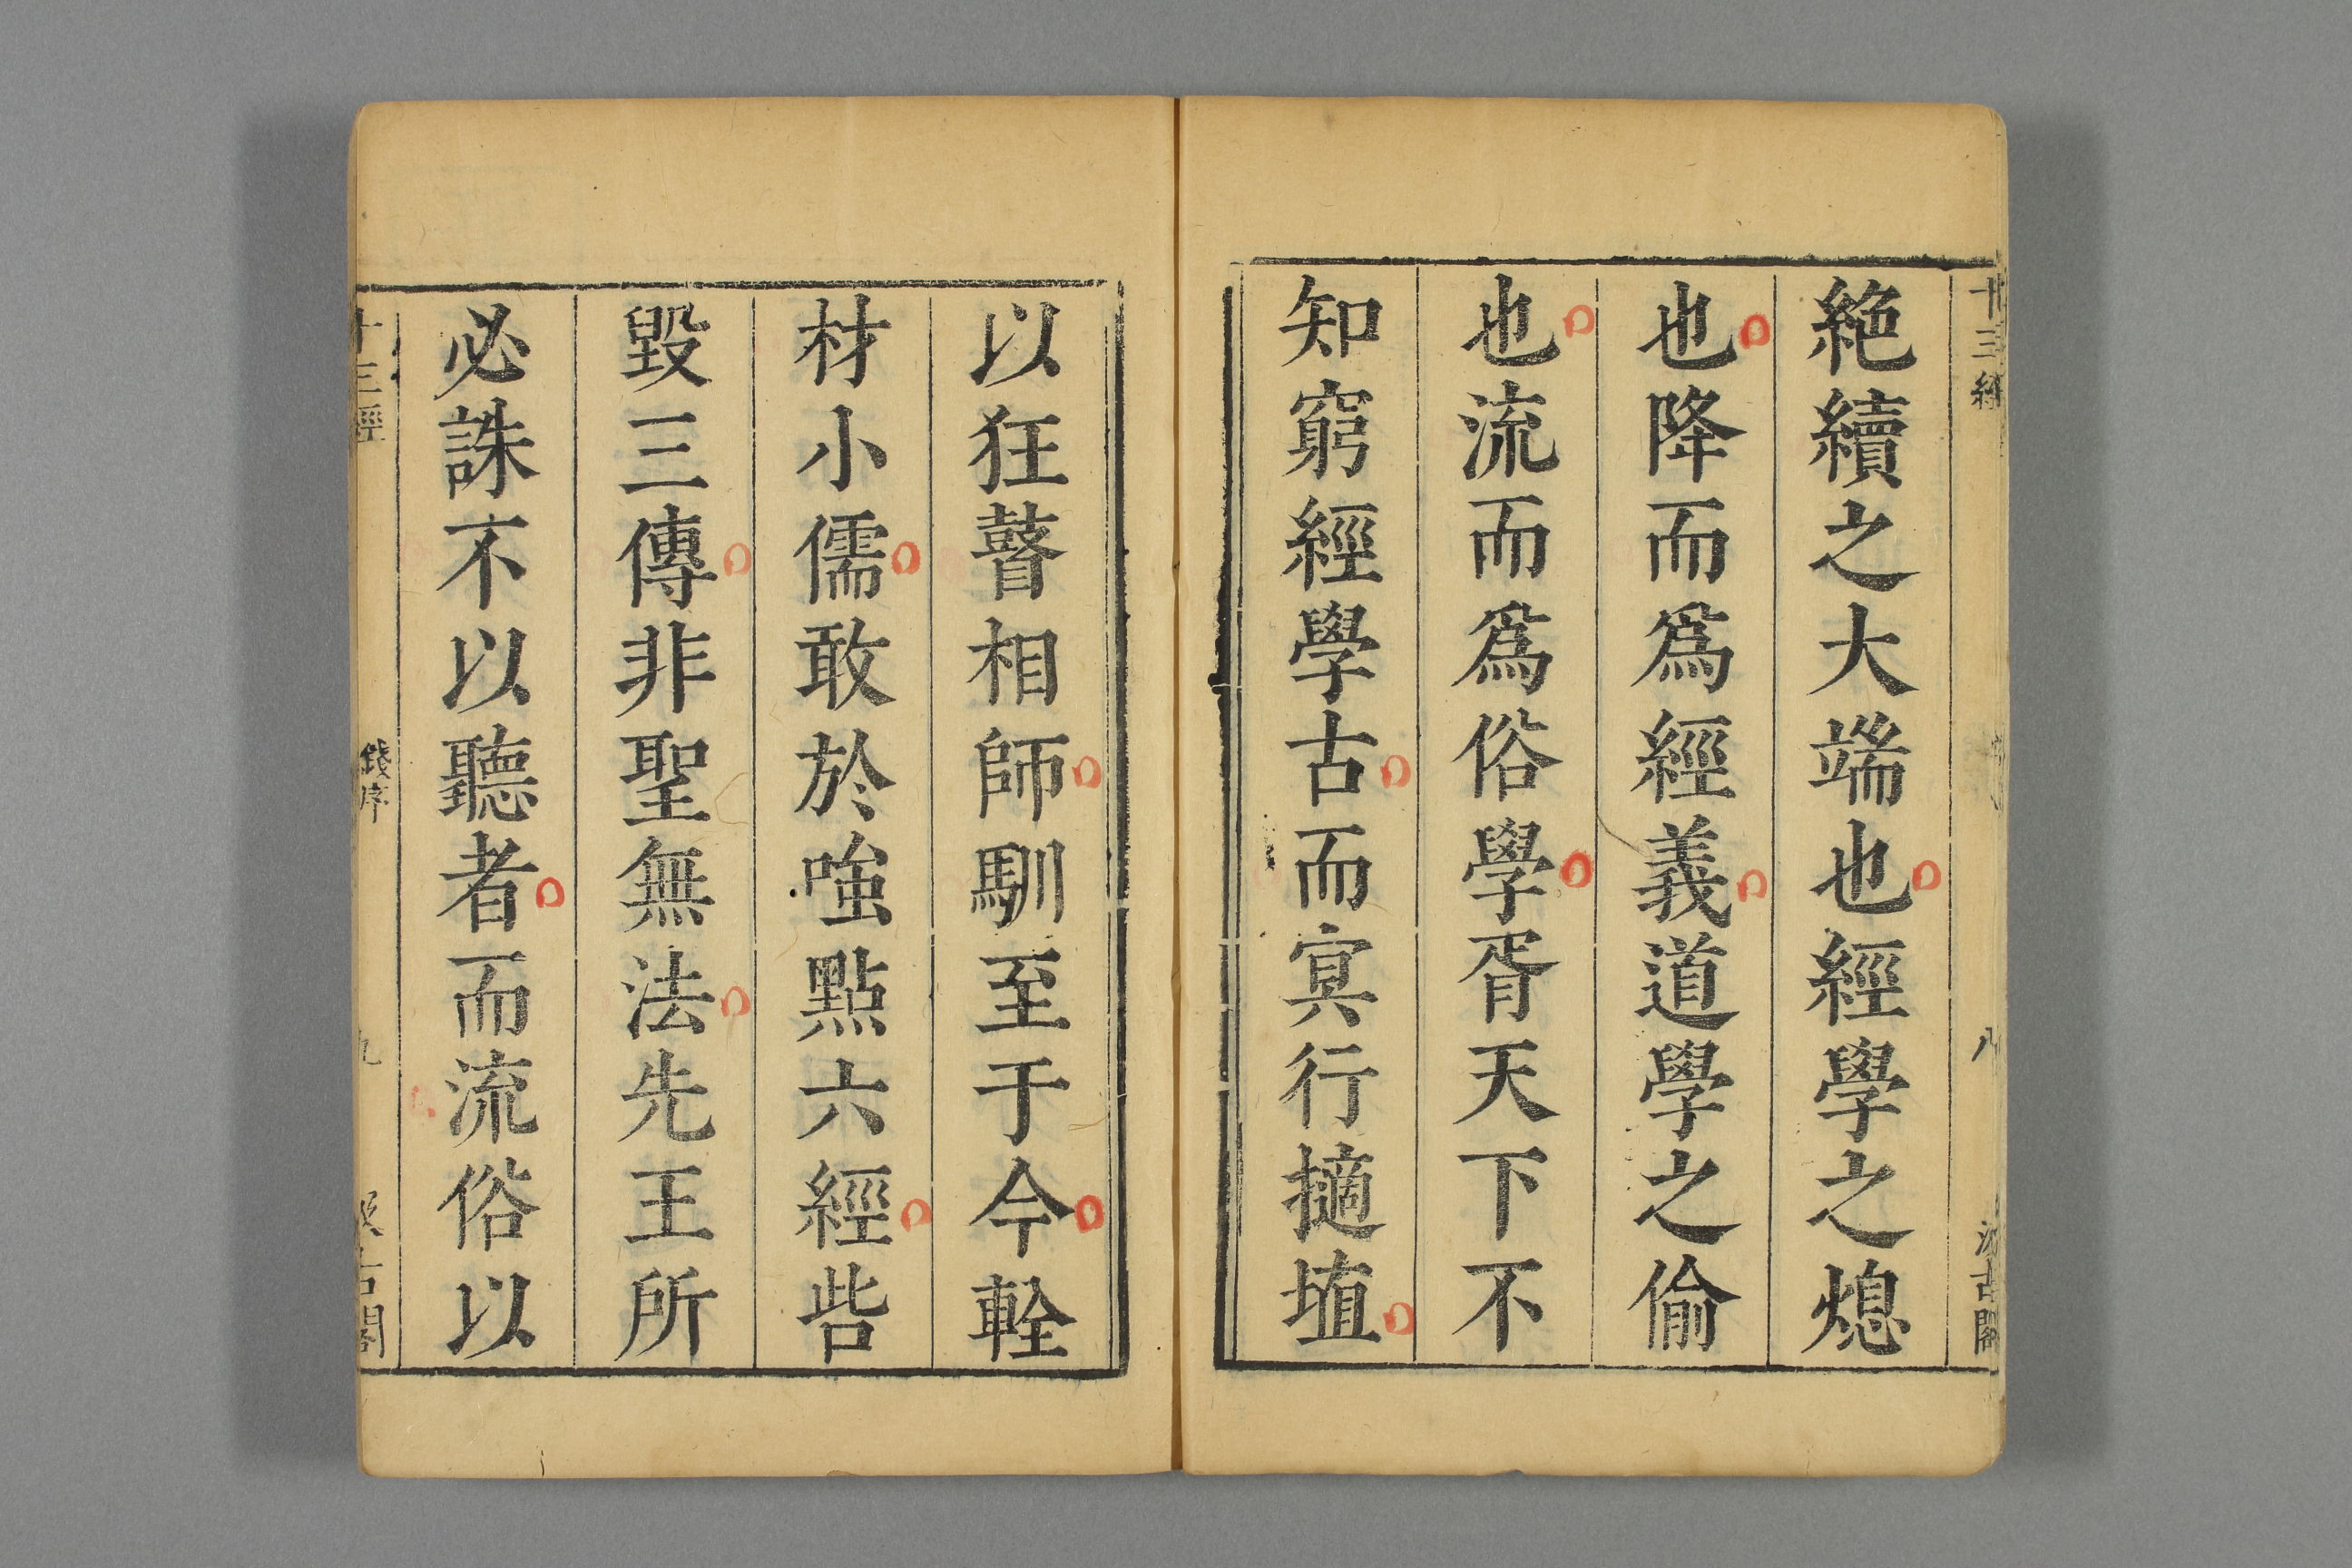 十三經
八
汲古閣
絶續之大端也經學之熄
也降而爲經義道學之偷
也流而爲俗學胥天下不
知窮經學古而冥行擿埴
以狂瞽相師馴至于今輇
材小儒敢於嗤點六經呰
毀三傳非聖無法先王所
必誅不以聽者而流俗以
十三經
錢序
九
汲古閣